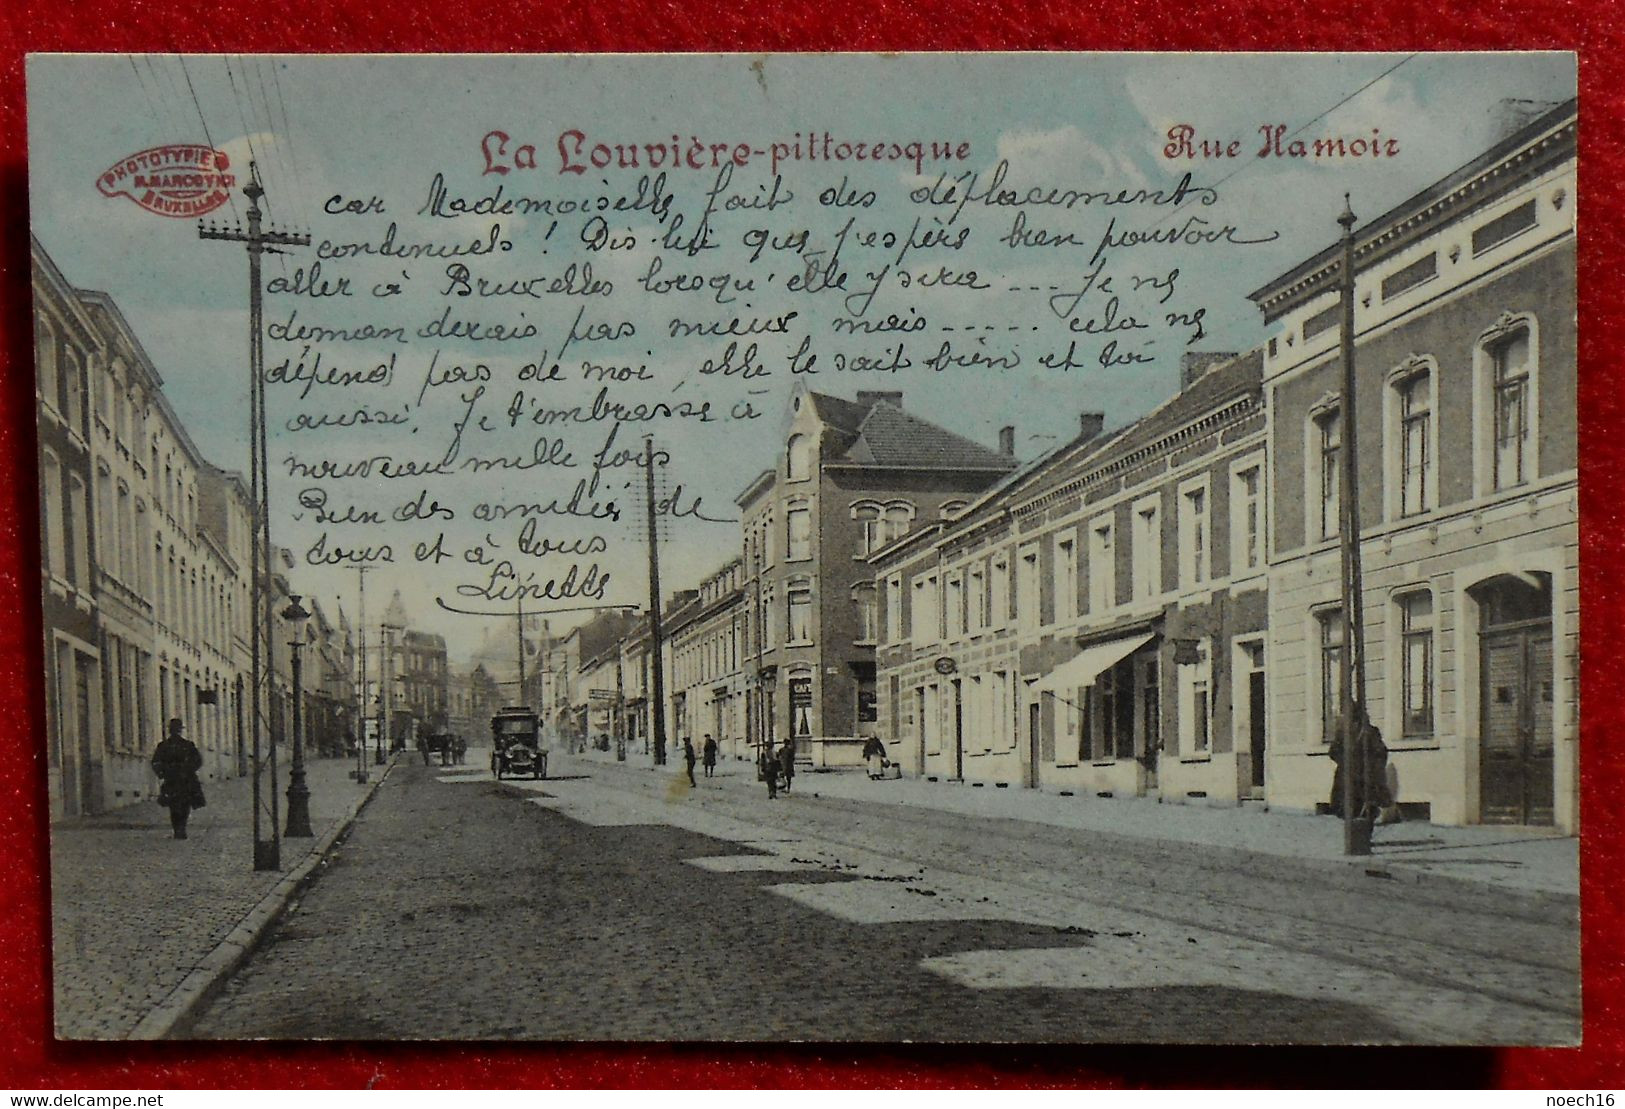 La Louvière-pittoresque
Rue Hamoir
PHOTOTYPIE
M. MARCOVICI
BRUXELLES
car Mademoiselle fait des déplacements
continuels ! Dis-lui que j'espère bien pouvoir
aller à Bruxelles lorsqu'elle y sera ... Je ne
demanderais pas mieux mais ..... cela ne
dépend pas de moi, elle le sait bien et toi
aussi. Je t'embrasse à
nouveau mille fois
Bien des amitiés de
tous et à tous
Linette
CAFÉ
delcampe.net
noech16